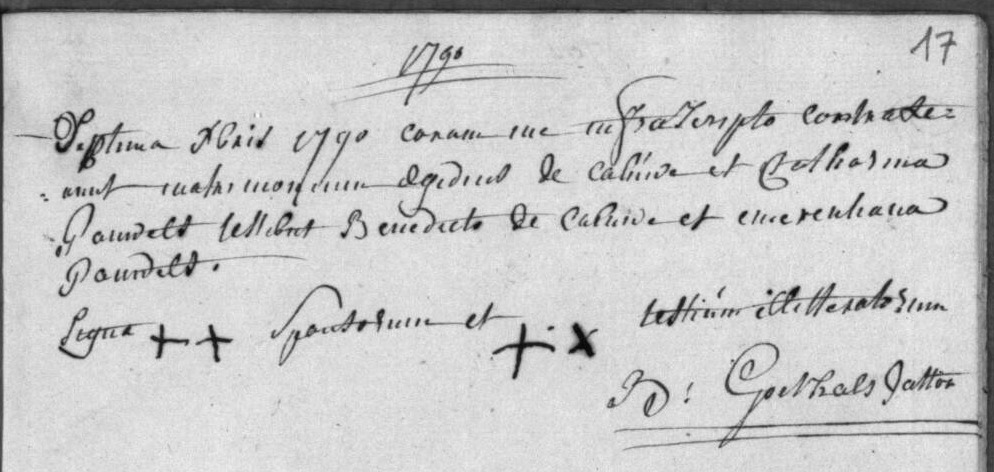 17
1790
Septima Xbris 1790 coram me infrascripto contraxe=
=runt matrimonium Ægidius de Caluwe et Catharina
Pauwels testibus Benedicto de Caluwe et emerentiana
Pauwels.
Signa + + Sponsorum et + x testium illitteratorum
Goethals Pastor